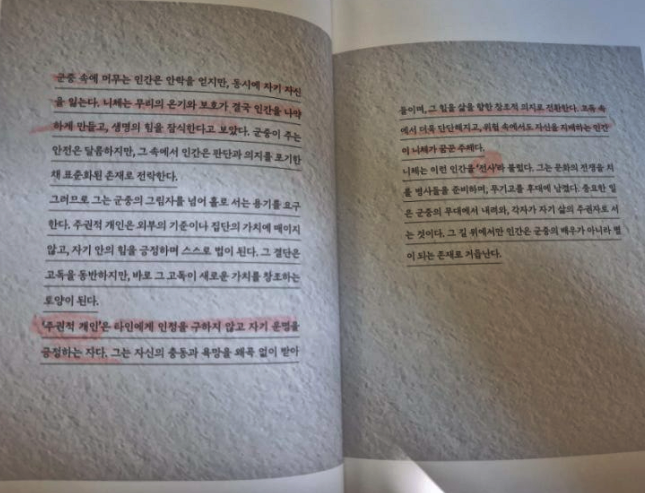 군중 속에 머무는 인간은 안락을 얻지만, 동시에 자기 자신
을 잃는다. 니체는 무리의 온기와 보호가 결국 인간을 나약
하게 만들고, 생명의 힘을 잠식한다고 보았다. 군중이 주는
안전은 달콤하지만, 그 속에서 인간은 판단과 의지를 포기한
채 표준화된 존재로 전락한다.
그러므로 그는 군중의 그림자를 넘어 홀로 서는 용기를 요구
한다. 주권적 개인은 외부의 기준이나 집단의 가치에 매이지
않고, 자기 안의 힘을 긍정하며 스스로 법이 된다. 그 결단은
고독을 동반하지만, 바로 그 고독이 새로운 가치를 창조하는
토양이 된다.
'주권적 개인'은 타인에게 인정을 구하지 않고 자기 운명을
긍정하는 자다. 그는 자신의 충동과 욕망을 왜곡 없이 받아
들이며, 그 힘을 삶을 향한 창조적 의지로 전환한다. 고독 속
에서 더욱 단단해지고, 위험 속에서도 자신을 지배하는 인간
이 니체가 꿈꾼 주체다.
니체는 이런 인간을 '전사'라 불렀다. 그는 문화의 전쟁을 치
를 병사들을 준비하며, 무기고를 후대에 남겼다. 중요한 일
은 군중의 무대에서 내려와, 각자가 자기 삶의 주권자로 서
는 것이다. 그 길 위에서만 인간은 군중의 배우가 아니라 별
이 되는 존재로 거듭난다.